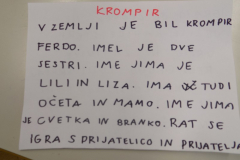 KROMPIR
V ZEMLJI JE BIL KROMPIR
FERDO. IMEL JE DVE
SESTRI. IME JIMA JE
LILI IN LIZA. IMA TUDI
OČETA IN MAMO. IME JIMA
JE CVETKA IN BRANKO. RAT SE
IGRA S PRIJATELICO IN PRIJATELJA